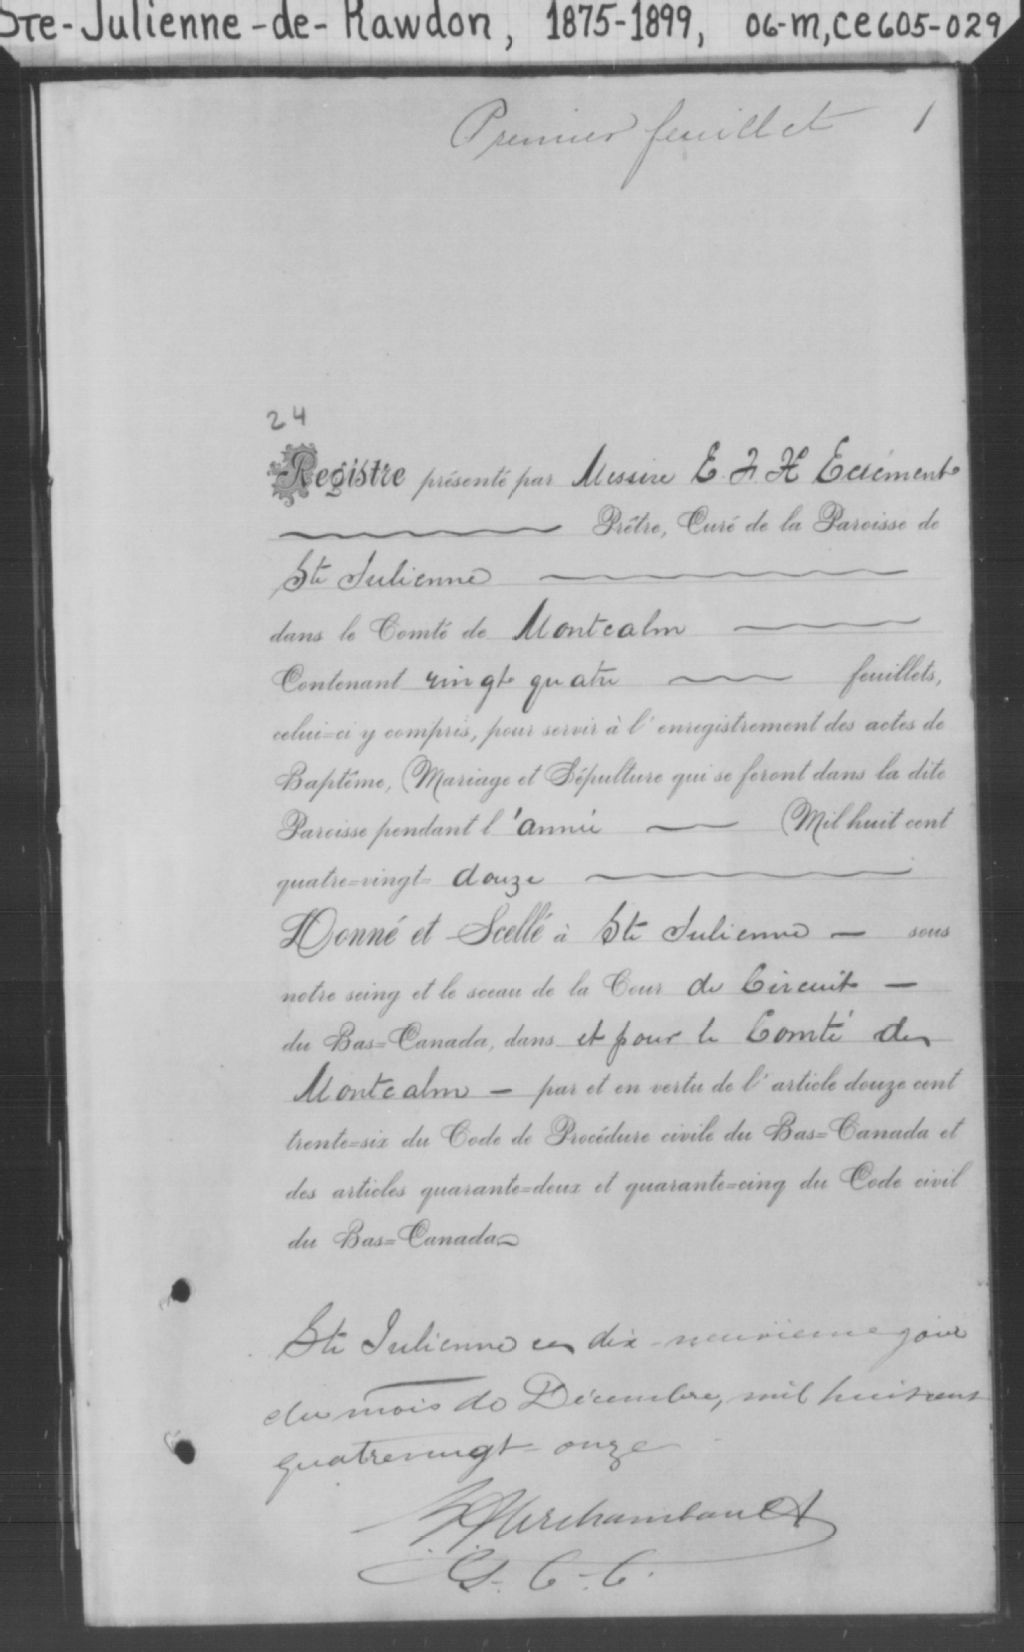 Ste-Julienne-de-Rawdon, 1875-1899, 06-M,CE605-029
Premier feuillet 1
24
Registre présenté par Messire E. F. H. Ecrément
Prêtre, Curé de la Paroisse de
Ste Julienne
dans le Comté de Montcalm
Contenant vingt quatre feuillets,
celui=ci y compris, pour servir à l'enregistrement des actes de
Baptême, Mariage et Sépulture qui se feront dans la dite
Paroisse pendant l'année Mil huit cent
quatre=vingt= douze
Donné et Scellé à Ste Julienne — sous
notre seing et le sceau de la Cour de Circuit —
du Bas=Canada, dans et pour le Comté de
Montcalm — par et en vertu de l'article douze cent
trente=six du Code de Procédure civile du Bas=Canada et
des articles quarante=deux et quarante=cinq du Code civil
du Bas=Canada
Ste Julienne ce dix-neuvieme jour
du mois de Décembre, mil huit cent
quatrevingt onze
Archambault
G. C. C.